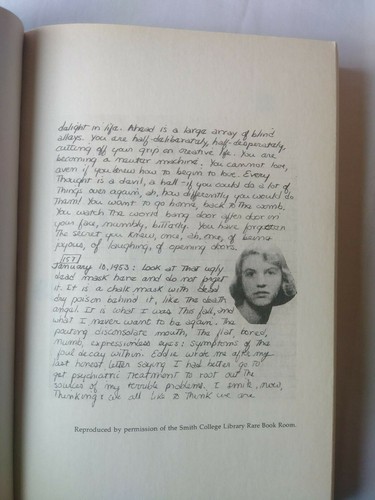 delight in life. Ahead is a large array of blind
alleys. You are half-deliberately, half-desperately
cutting off your grip on creative life. You are
becoming a neuter machine. You cannot love,
even if you knew how to begin to love. Every
Thought is a devil, a hell - if you could do a lot of
Things over again, ah, how differently you would do
Them! You want to go home, back to the womb.
You watch the world bang door after door in
your face, numbly, bitterly. You have forgotten
The secret you knew, once, ah, once, of being
joyous, of laughing, of opening doors.
157
January 10, 1953: Look at that ugly
dead mask here and do not forget
it. It is a chalk mask with dead
dry poison behind it, like the death
angel. It is what I was This fall, and
what I never want to be again. The
pouting disconsolate mouth, The flat, bored,
numb, expressionless eyes: symptoms of the
foul decay within. Eddie wrote me after my
last honest letter saying I had better go to
get psychiatric treatment to root out the
sources of my terrible problems. I smile, now,
Thinking: we all like to Think we are
Reproduced by permission of the Smith College Library Rare Book Room.